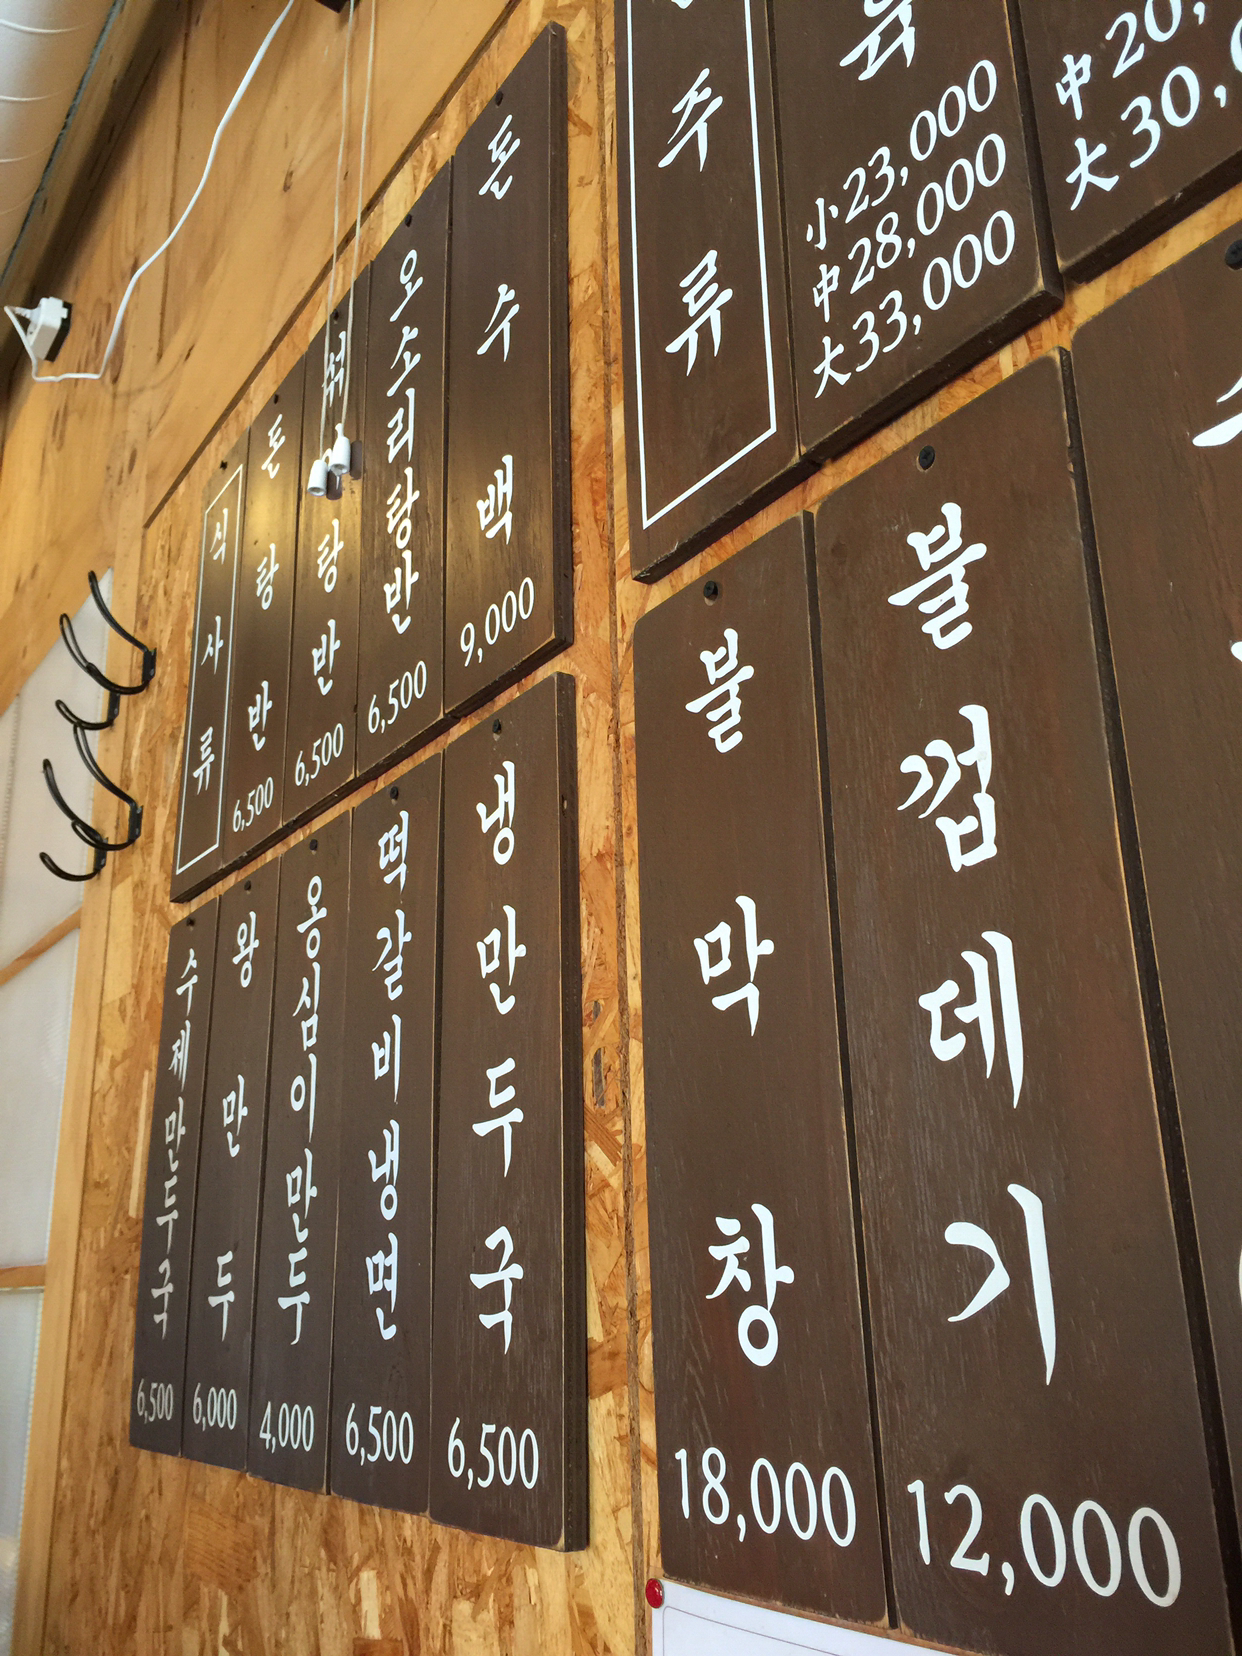 식사류
돈탕반 6,500
섞 탕반 6,500
오소리탕반 6,500
돈수백 9,000
수제만두국 6,500
왕만두 6,000
옹심이만두 4,000
떡갈비냉면 6,500
냉만두국 6,500
주류
小 23,000
中 28,000
大 33,000
中 20,
大 30,
불막창 18,000
불껍데기 12,000